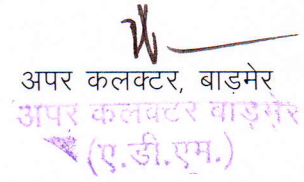 अपर कलक्टर, बाड़मेर
अपर कलक्टर बाड़मेर
(ए.डी.एम.)